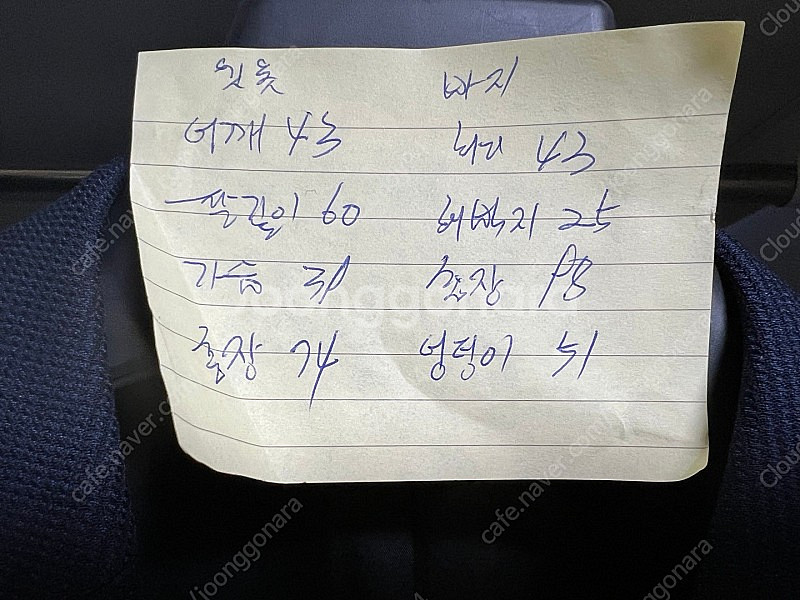 윗옷 바지
어깨 43 허리 43
팔길이 60 허벅지 25
가슴 총장 98
총장 74 엉덩이 51
joonggonara
cafe.naver.com/joonggonara